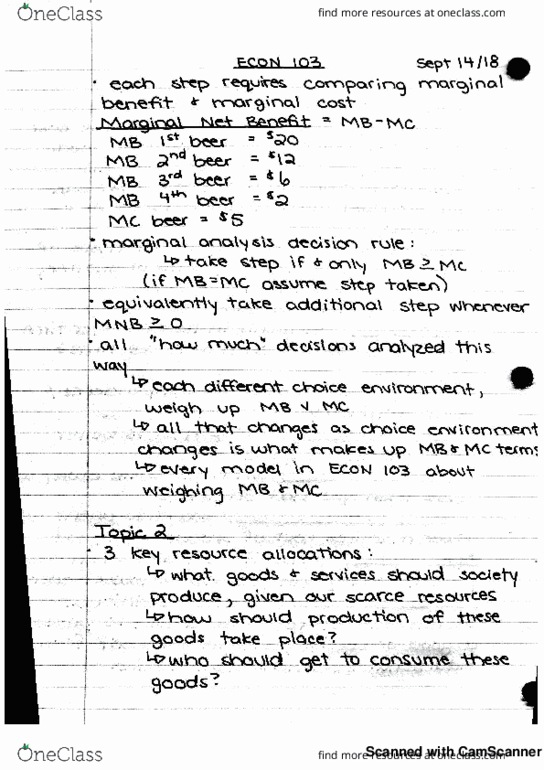 OneClass
find more resources at oneclass.com
ECON 103
Sept 14/18
· each step requires comparing marginal
benefit & marginal cost
Marginal Net Benefit = MB-MC
MB 1st beer = $20
MB 2nd beer = $12
MB 3rd beer = $6
MB 4th beer = $2
MC beer = $5
· marginal analysis decision rule:
↳ take step if & only MB ≥ MC
(if MB=MC assume step taken)
· equivalently take additional step whenever
MNB ≥ 0
· all "how much" decisions analyzed this
way
↳ each different choice environment,
weigh up MB v MC
↳ all that changes as choice environment
changes is what makes up MB & MC terms
↳ every model in ECON 103 about
weighing MB & MC
Topic 2
· 3 key resource allocations:
↳ what goods & services should society
produce, given our scarce resources
↳ how should production of these
goods take place?
↳ who should get to consume these
goods?
OneClass
find more resources at oneclass.com
Scanned with CamScanner